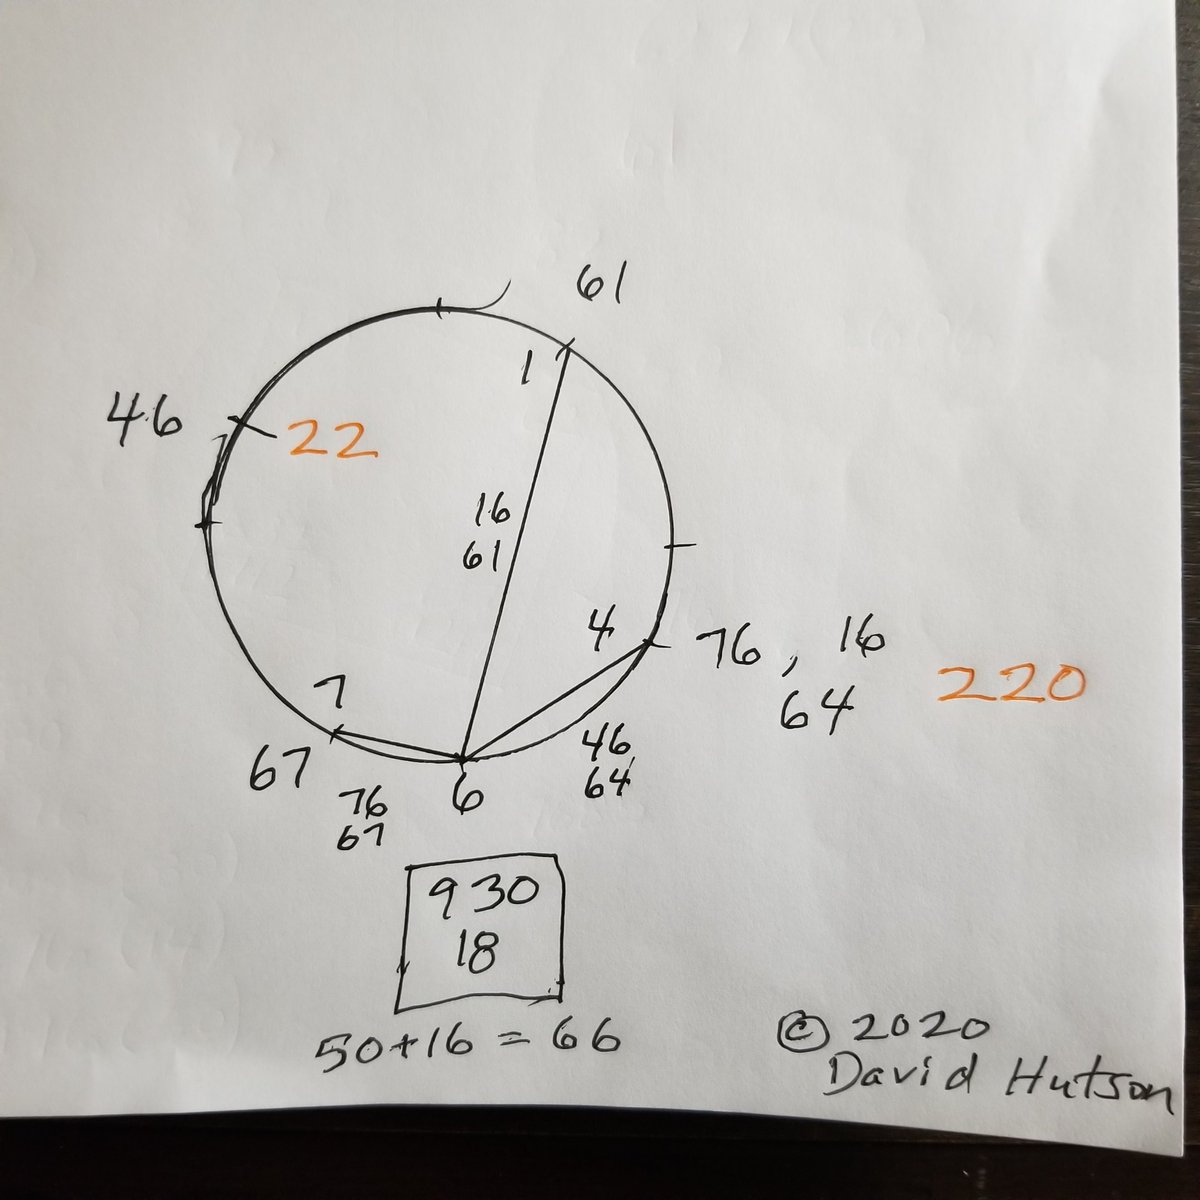 61
1
46
22
16
61
4
76, 16
64
220
7
67
76
67
6
46
64
930
18
50+16 = 66
© 2020
David Hutson